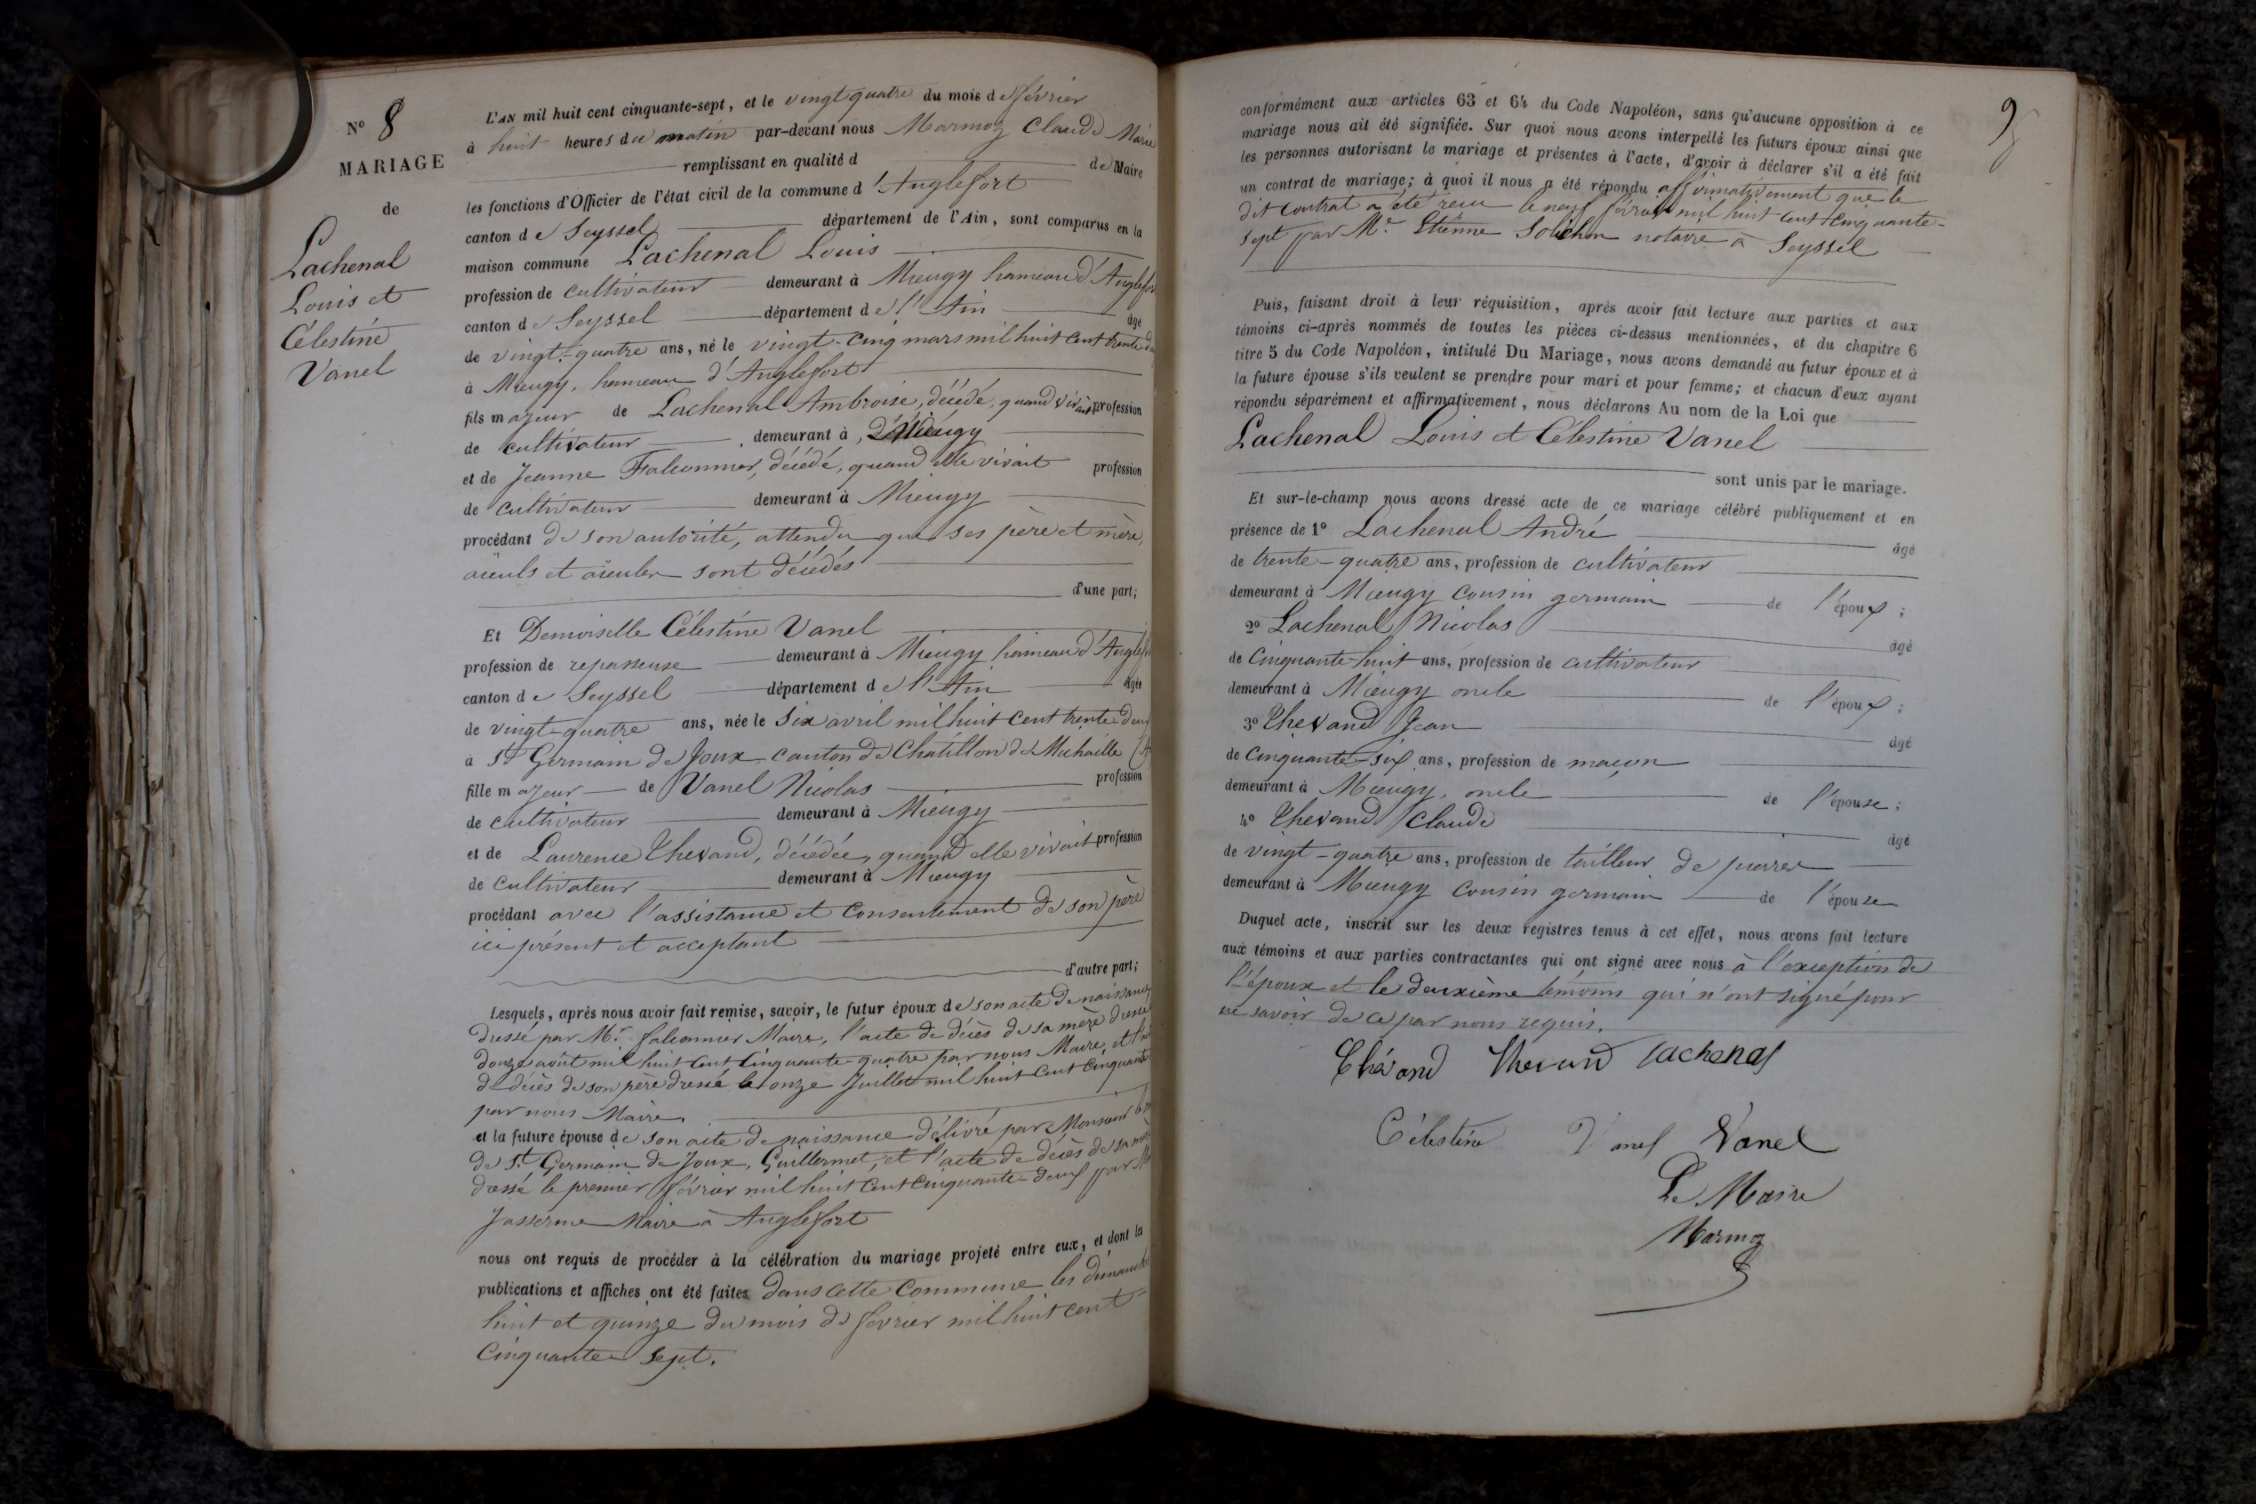 N° 8
MARIAGE
de
Lachenal
Louis et
Célestine
Vanel
L'AN mil huit cent cinquante-sept, et le vingt quatre du mois de février
à huit heures du matin par-devant nous Marmoz Claude Marie
remplissant en qualité d de Maire
les fonctions d'Officier de l'état civil de la commune d'Anglefort
canton de Seyssel département de l'Ain, sont comparus en la
maison commune Lachenal Louis
profession de cultivateur demeurant à Mieugy hameau d'Anglefort
canton de Seyssel département de l'Ain âgé
de vingt-quatre ans, né le vingt-cinq mars mil huit cent trente
à Mieugy, hameau d'Anglefort
fils majeur de Lachenal Ambroise, décédé, quand vivait profession
de cultivateur demeurant à Mieugy
et de Jeanne Falconnier, décédé, quand elle vivait profession
de cultivateur demeurant à Mieugy
procédant de son autorité, attendu que ses père et mère,
aïeuls et aïeules sont décédés
d'une part;
Et Demoiselle Célestine Vanel
profession de repasseuse demeurant à Mieugy hameau d'Anglefort
canton de Seyssel département de l'Ain âgée
de vingt-quatre ans, née le six avril mil huit cent trente deux
à St Germain de Joux canton de Châtillon de Michaille
fille majeur de Vanel Nicolas profession
de cultivateur demeurant à Mieugy
et de Laurence Thevand, décédée, quand elle vivait profession
de cultivateur demeurant à Mieugy
procédant avec l'assistance et consentement de son père
ici présent et acceptant
d'autre part;
Lesquels, après nous avoir fait remise, savoir, le futur époux de son acte de naissance
dressé par Mr falconnier Maire, l'acte de décès de sa mère dressé
douze août mil huit cent cinquante-quatre par nous Maire, et
de décès de son père dressé le onze Juillet mil huit cent cinquante
par nous Maire
et la future épouse de son acte de naissance délivré par Monsieur
de St Germain de Joux, Guillermet, et l'acte de décès de sa mère
dressé le premier février mil huit cent cinquante-deux par
Jasserme Maire à Anglefort
nous ont requis de procéder à la célébration du mariage projeté entre eux, et dont la
publications et affiches ont été faites dans cette commune les dimanches
huit et quinze du mois de février mil huit cent
cinquante sept.
9
conformément aux articles 63 et 64 du Code Napoléon, sans qu'aucune opposition à ce
mariage nous ait été signifiée. Sur quoi nous avons interpellé les futurs époux ainsi que
les personnes autorisant le mariage et présentes à l'acte, d'avoir à déclarer s'il a été fait
un contrat de mariage; à quoi il nous a été répondu affirmativement que le
dit contrat a été reçu le neuf février mil huit cent cinquante-
sept par Mr Etienne notaire à Seyssel
Puis, faisant droit à leur réquisition, après avoir fait lecture aux parties et aux
témoins ci-après nommés de toutes les pièces ci-dessus mentionnées, et du chapitre 6
titre 5 du Code Napoléon, intitulé Du Mariage, nous avons demandé au futur époux et à
la future épouse s'ils veulent se prendre pour mari et pour femme; et chacun d'eux ayant
répondu séparément et affirmativement, nous déclarons Au nom de la Loi que
Lachenal Louis et Célestine Vanel
sont unis par le mariage.
Et sur-le-champ nous avons dressé acte de ce mariage célébré publiquement et en
présence de 1° Lachenal André âgé
de trente-quatre ans, profession de cultivateur
demeurant à Mieugy cousin germain de l'époux;
2° Lachenal Nicolas âgé
de cinquante-huit ans, profession de cultivateur
demeurant à Mieugy oncle de l'époux;
3° Thevand Jean âgé
de cinquante-six ans, profession de maçon
demeurant à Mieugy, oncle de l'épouse;
4° Thevand Claude âgé
de vingt-quatre ans, profession de tailleur de pierres
demeurant à Mieugy cousin germain de l'épouse
Duquel acte, inscrit sur les deux registres tenus à cet effet, nous avons fait lecture
aux témoins et aux parties contractantes qui ont signé avec nous à l'exception de
l'époux et le deuxième témoins qui n'ont signé pour
ne savoir de ce par nous requis.
Thévand Thevand Lachenal
Célestine Vanel Vanel
Le Maire
Marmoz